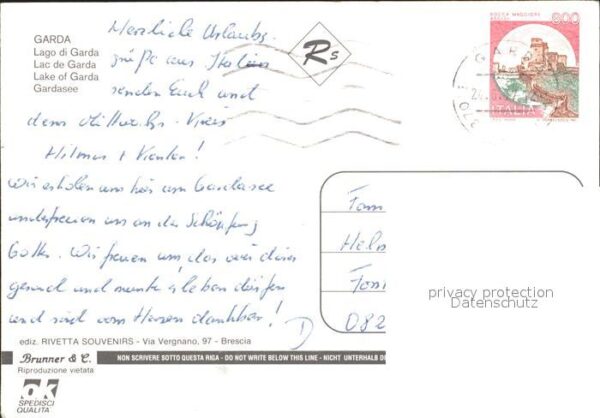 GARDA
Lago di Garda
Lac de Garda
Lake of Garda
Gardasee
Herzliche Urlaubs-
grüße aus Italien
senden Euch und
dem
Hilmar +
Wir erholen uns hier am Gardasee
und freuen uns an der Schöpfung
Gottes. Wir freuen uns, das wir dieses
gesund und munter erleben dürfen
und sind vom Herzen dankbar!
Rs
ROCCA MAGGIORE
ASSISI
800
ITALIA
GARDA
Tom
Helm
082
privacy protection
Datenschutz
ediz. RIVETTA SOUVENIRS - Via Vergnano, 97 - Brescia
Brunner & C.
Riproduzione vietata
NON SCRIVERE SOTTO QUESTA RIGA - DO NOT WRITE BELOW THIS LINE - NICHT UNTERHALB
ok
SPEDISCI
QUALITÀ